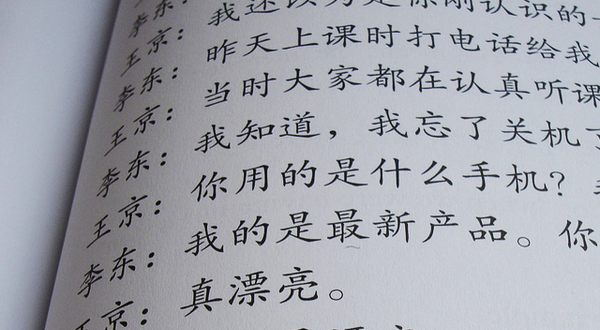 李东：
王京：我还以为是你刚认识的
李东：昨天上课时打电话给我
王京：当时大家都在认真听课
李东：我知道，我忘了关机了
王京：你用的是什么手机？
李东：我的是最新产品。你
王京：真漂亮。